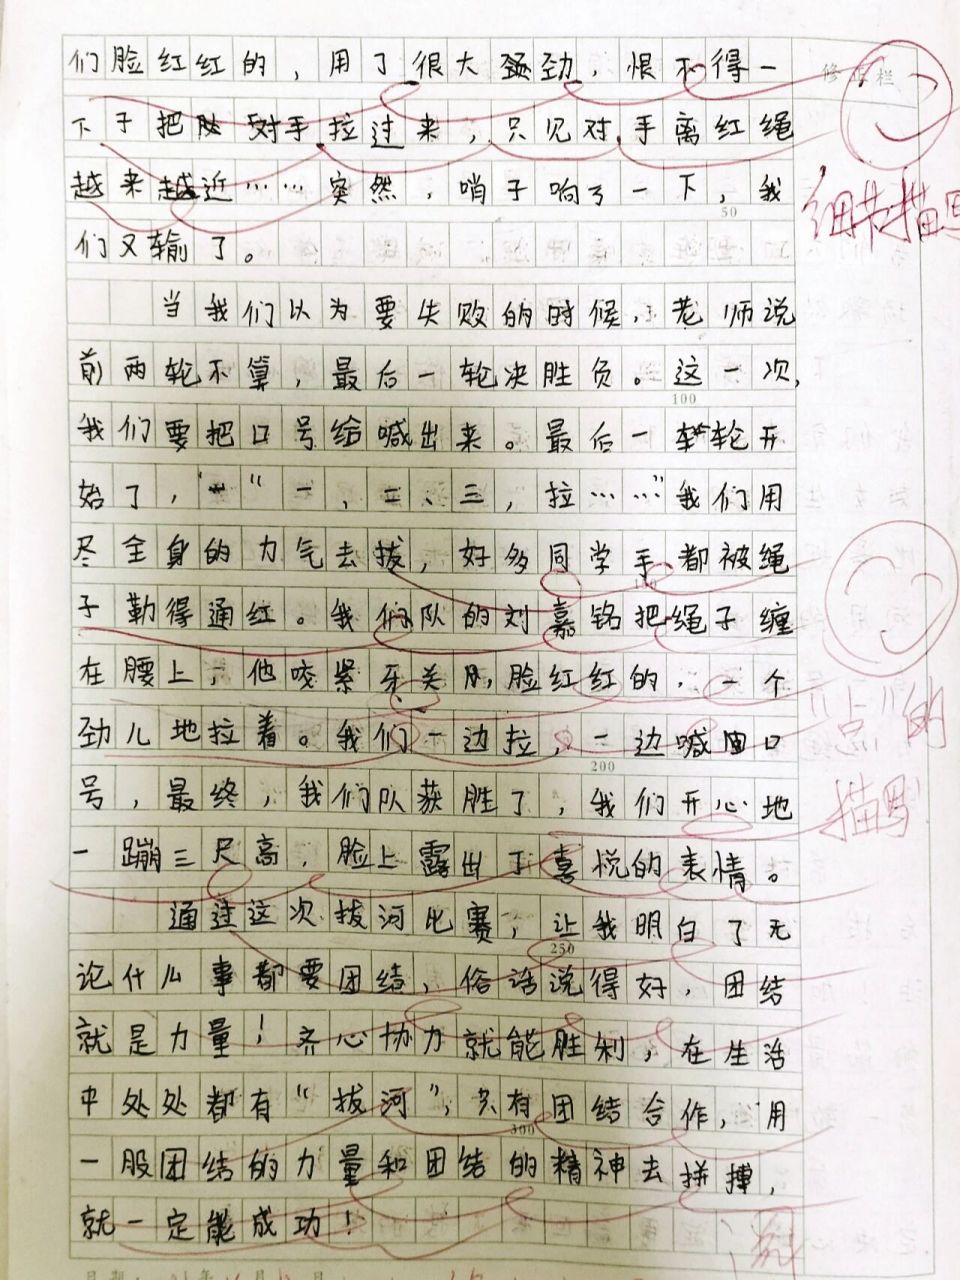 们脸红红的，用了很大劲，恨不得一
修 正 栏
下子把对手拉过来，只见对手离红绳
越来越近……突然，哨子响了一下，我
细节描写
50
们又输了。
当我们以为要失败的时候，老师说
前两轮不算，最后一轮决胜负。这一次，
100
我们要把口号给喊出来。最后一轮开
始了，“一，二、三，拉……”我们用
尽全身的力气去拔，好多同学手都被绳
子勒得通红。我们队的刘嘉铭把绳子缠
在腰上，他咬紧牙关，脸红红的，一个
劲儿地拉着。我们一边拉，一边喊口
200
的
号，最终，我们队获胜了，我们开心地
描写
一蹦三尺高，脸上露出了喜悦的表情。
通过这次拔河比赛，让我明白了无
250
论什么事都要团结，俗话说得好，团结
就是力量！齐心协力就能胜利，在生活
中处处都有“拔河”，只有团结合作，用
300
一股团结的力量和团结的精神去拼搏，
就一定能成功！